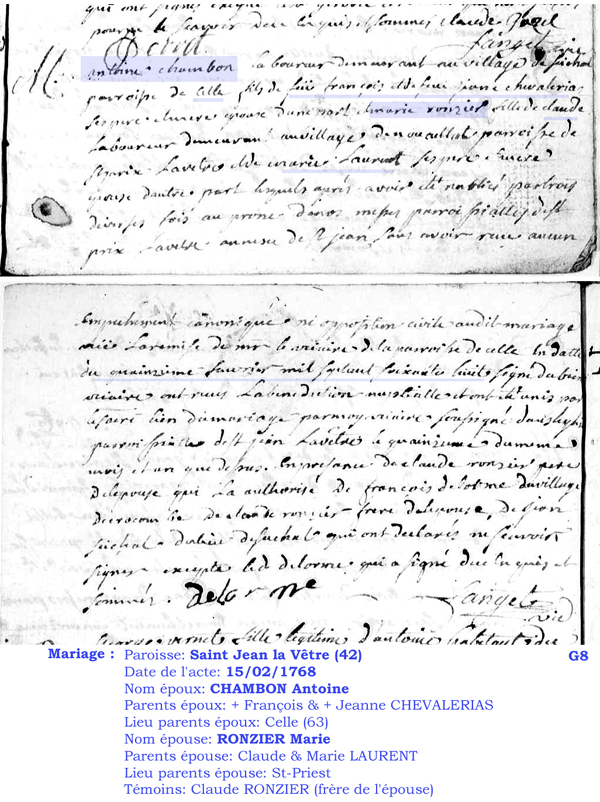 pourne le sçavoir de ce requis et sommés claude
fanget vic
antoine chambon laboureur demeurant au village de suchal
parroisse de celle fils de feüe francois et de feue jane chevalerias
ses pere et mere epoux d'une part et marie ronzier fille de claude
laboureur demeurant au village de parroisse de
st prix lavetre et de marie laurent ses pere et mere
epouse d'autre part lesquels après avoir été publiés par trois
diverses fois au prone de nos messes parroissialles de st
prix lavetre annexe de st jean sans avoir reçu aucun
empechement canonique ni opposition civile audit mariage
vüe la remise de mr le vicaire de la parroisse de celle en datte
du quainzieme fevrier mil sept cent soixante huit signé
vicaire ont reçus la benediction nuptialle et ont été unis par
le sacré lien du mariage par moy vicaire soussigné dans l'eglise
parroissialle de st jean lavêtre le quainzieme du meme
mois et an que dessus en presance de claude ronzier pere
de lepouse qui la authorisé de francois delorme du village
de claude ronzier frere de lepouse, de jean
suchal de suchal qui ont declarés ne sçavoir
signer excepté led delorme qui a signé de ce requis et
sommés. delorme fanget
vic
vernet fille legitime d'antoine habitant de
Mariage : Paroisse: Saint Jean la Vêtre (42) G8
Date de l'acte: 15/02/1768
Nom époux: CHAMBON Antoine
Parents époux: + François & + Jeanne CHEVALERIAS
Lieu parents époux: Celle (63)
Nom épouse: RONZIER Marie
Parents épouse: Claude & Marie LAURENT
Lieu parents épouse: St-Priest
Témoins: Claude RONZIER (frère de l'épouse)